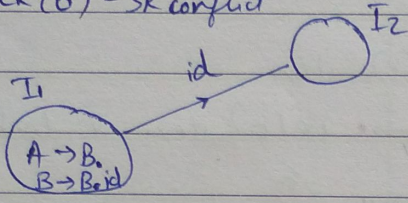 SR conflict
I2
id
I1
A → B.
B → B.id